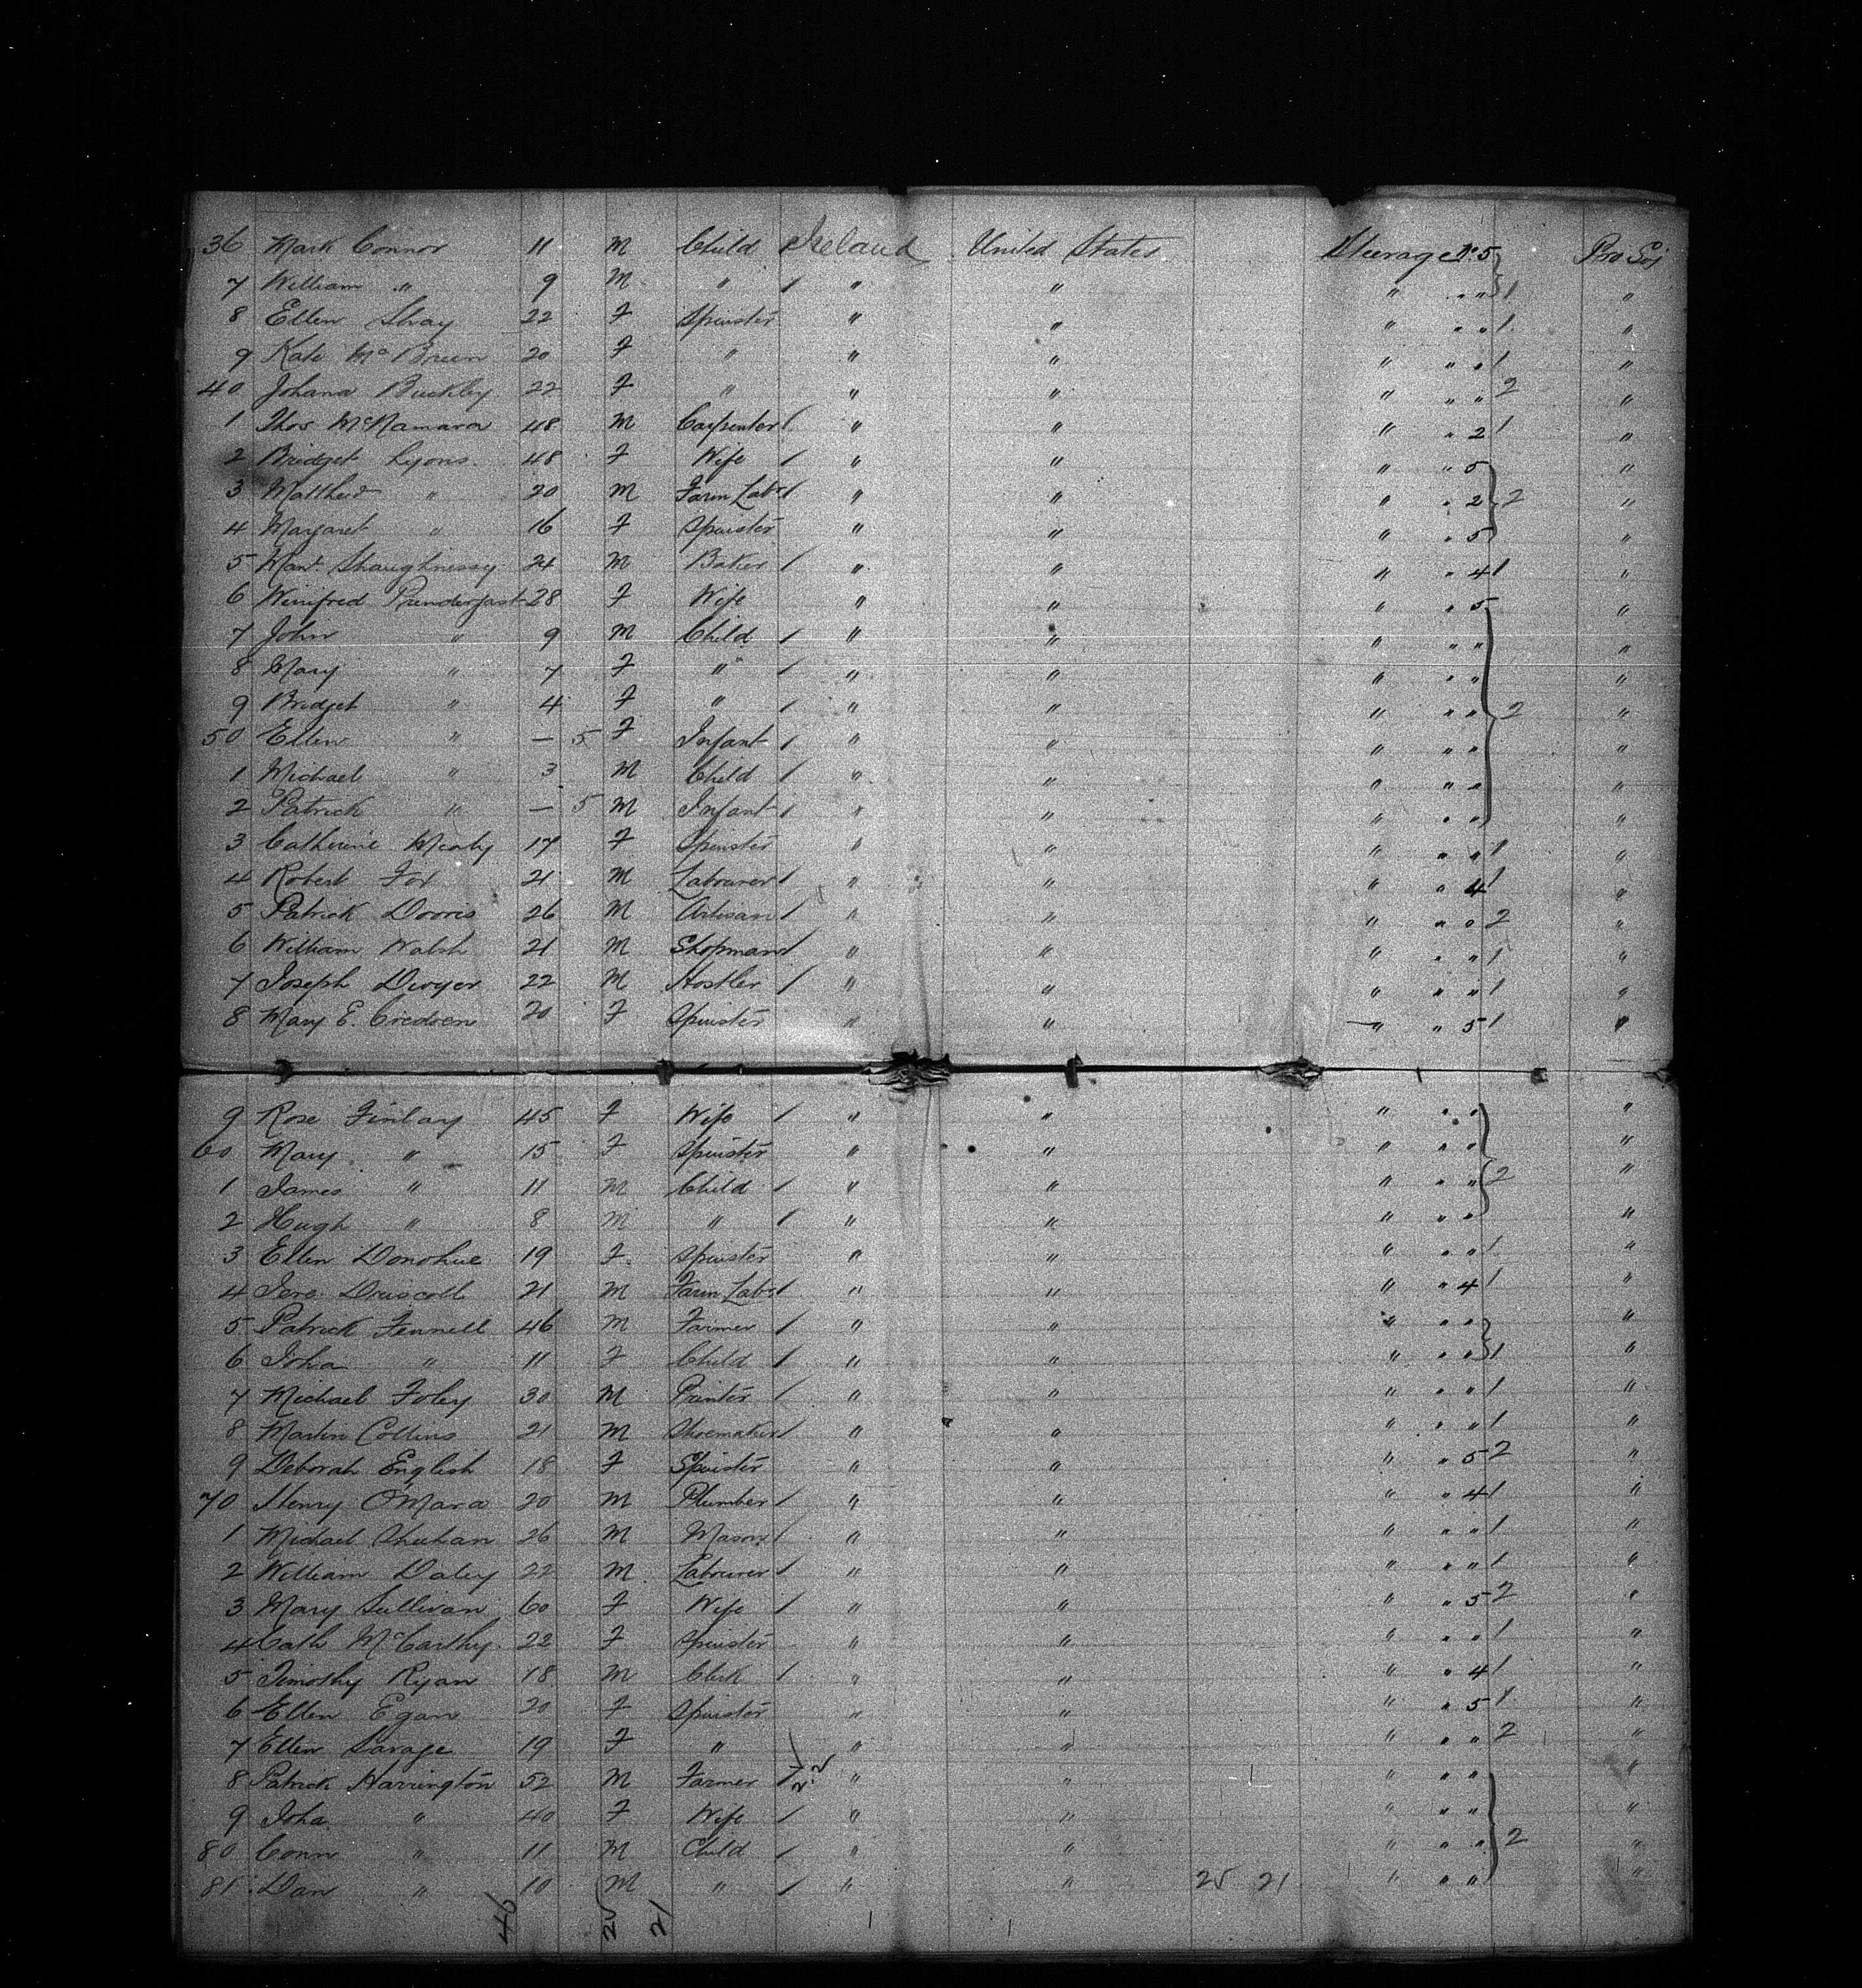 36 Mark Connor 11 M Child Ireland United States Steerage No. 5 Pro Soj
7 William " 9 M " / " " " " " } 1 "
8 Ellen Shay 22 F Spinster " " " " " 1 "
9 Kate McBreen 20 F " " " " " " 1 "
40 Johana Buckley 22 F " " " " " " 2 "
1 Thos McNamara 48 M Carpenter / " " " " 2 1 "
2 Bridget Lyons 48 F Wife / " " " " 5 "
3 Matthew " 20 M Farm Labr / " " " " 2 } 2 "
4 Margaret " 16 F Spinster " " " " 5 "
5 Mart. Shaughnessy 24 M Baker / " " " " 4 1 "
6 Winifred Prunderfast 28 F Wife " " " " 5 "
7 John " 9 M Child / " " " " " "
8 Mary " 7 F " / " " " " " "
9 Bridget " 4 F " / " " " " " } 2 "
50 Ellen " — 5 F Infant / " " " " " "
1 Michael " 3 M Child / " " " " " "
2 Patrick " — 5 M Infant / " " " " " "
3 Catherine 17 F Spinster " " " " " 1 "
4 Robert Fox 21 M Labourer / " " " " 4 1 "
5 Patrick Dorris 26 M Artisan / " " " " " 2 "
6 William Walsh 21 M Shopman / " " " " " 1 "
7 Joseph Dwyer 22 M Hostler / " " " " " 1 "
8 Mary E. Credeen 20 F Spinster " " " " 5 1 "
9 Rose Finlay 45 F Wife / " " " " " "
60 Mary " 15 F Spinster " " " " " "
1 James " 11 M Child / " " " " " } 2 "
2 Hugh " 8 M " / " " " " " "
3 Ellen Donohue 19 F Spinster " " " " " 1 "
4 Jere. Driscoll 21 M Farm Labr / " " " " 4 1 "
5 Patrick Fennell 46 M Farmer / " " " " " "
6 Joha " 11 F Child / " " " " " } 1 "
7 Michael Foley 30 M Printer / " " " " " 1 "
8 Martin Collins 21 M Shoemaker / " " " " " 1 "
9 Deborah English 18 F Spinster " " " " 5 2 "
70 Henry O'Mara 20 M Plumber / " " " " 4 1 "
1 Michael Sheehan 26 M Mason / " " " " " 1 "
2 William Daley 22 M Labourer / " " " " " 1 "
3 Mary Sullivan 60 F Wife / " " " " 5 2 "
4 Cath McCarthy 22 F Spinster " " " " " 1 "
5 Timothy Ryan 18 M Clerk / " " " " 4 1 "
6 Ellen Egan 20 F Spinster " " " " 5 1 "
7 Ellen Savage 19 F " " " " " " 2 "
8 Patrick Harrington 52 M Farmer / " " " " " "
9 Joha " 40 F Wife / " " " " " "
80 Conn " 11 M Child / " " " " " } 2 "
81 Dan " 10 M " / " " 25 21 " " " "
46 25 21